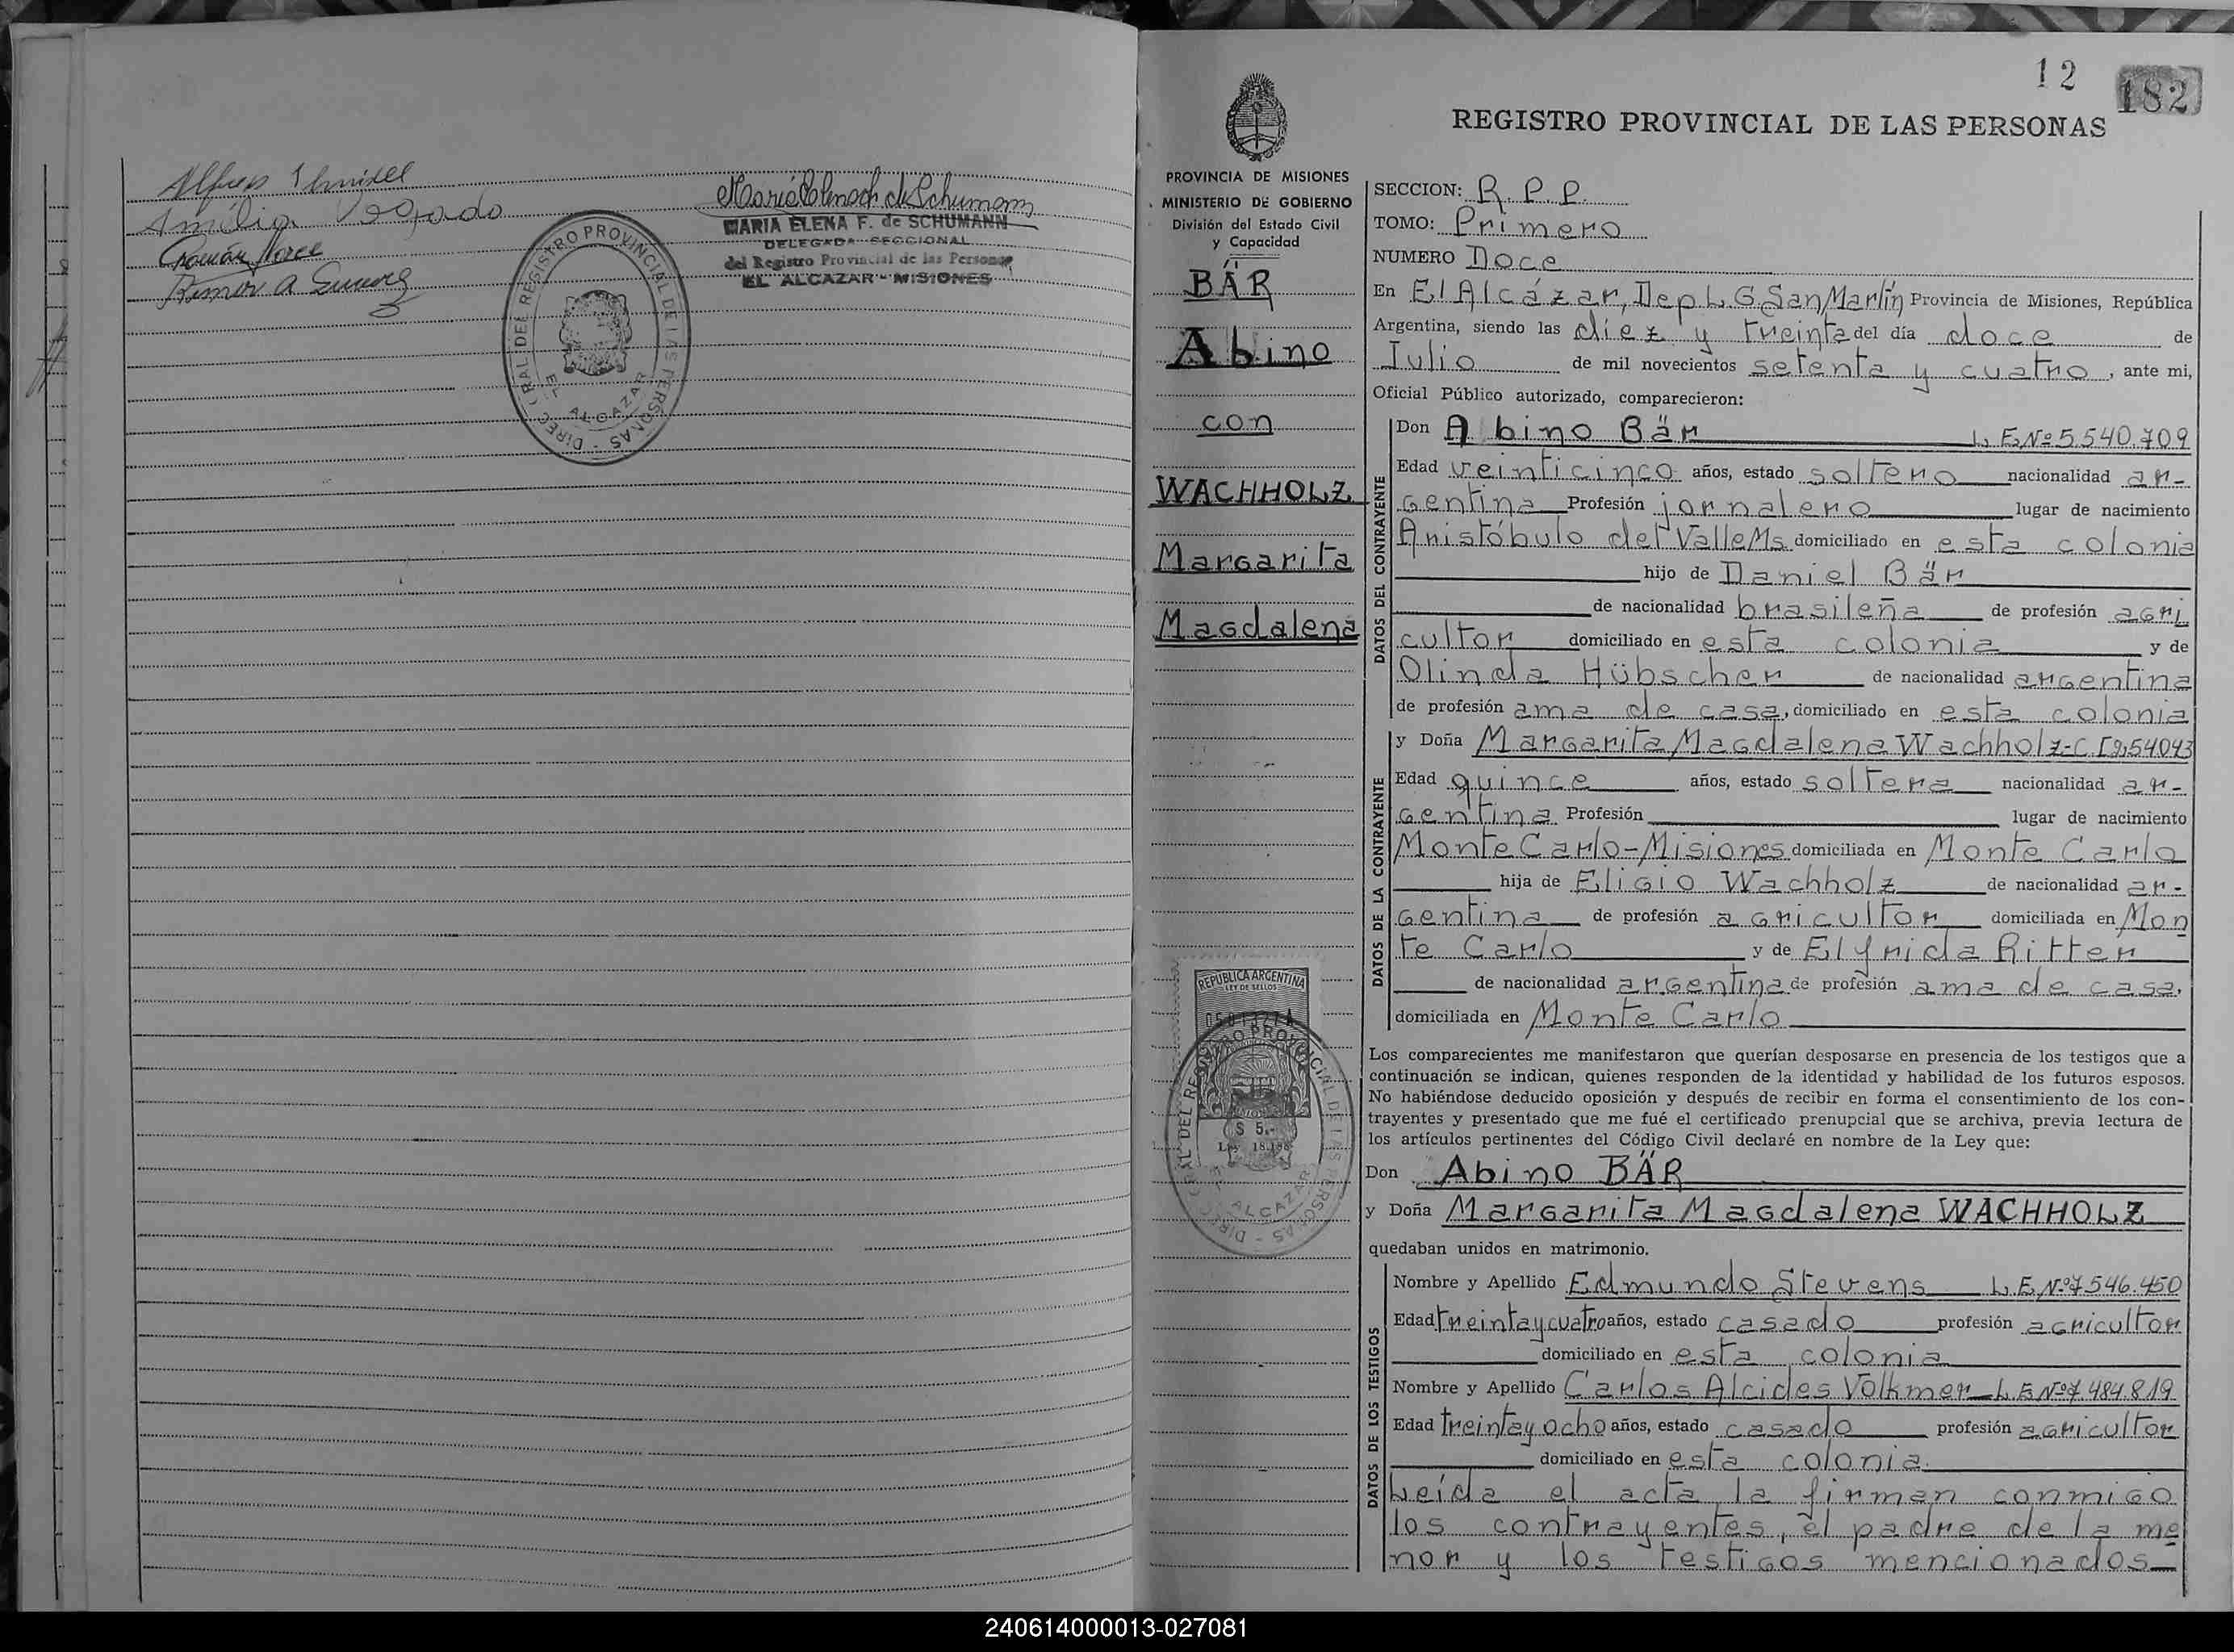 Amilia
MARIA ELENA F. de SCHUMANN
DELEGADA SECCIONAL
del Registro Provincial de las Personas
EL ALCAZAR - MISIONES
DIREC. GRAL DEL REGISTRO PROVINCIAL DE LAS PERSONAS
EL ALCAZAR
12
182
REGISTRO PROVINCIAL DE LAS PERSONAS
PROVINCIA DE MISIONES
MINISTERIO DE GOBIERNO
División del Estado Civil
y Capacidad
BÄR
Abino
con
WACHHOLZ
Margarita
Magdalena
REPUBLICA ARGENTINA
LEY DE SELLOS
$ 5.-
DIREC. GRAL DEL REGISTRO PROVINCIAL DE LAS PERSONAS
EL ALCAZAR
SECCION: R.P.P.
TOMO: Primero
NUMERO Doce
En El Alcázar, Dep L.G.San Martín Provincia de Misiones, República
Argentina, siendo las diez y treinta del día doce de
Julio de mil novecientos setenta y cuatro, ante mi,
Oficial Público autorizado, comparecieron:
DATOS DEL CONTRAYENTE
Don Abino Bär L.E.Nº 5.540.709
Edad veinticinco años, estado soltero nacionalidad ar-
gentina Profesión jornalero lugar de nacimiento
Aristóbulo del Valle Ms. domiciliado en esta colonia
hijo de Daniel Bär
de nacionalidad brasileña de profesión agri
cultor domiciliado en esta colonia y de
Olinda Hübscher de nacionalidad argentina
de profesión ama de casa, domiciliado en esta colonia
DATOS DE LA CONTRAYENTE
y Doña Margarita Magdalena Wachholz-C.I
Edad quince años, estado soltera nacionalidad ar-
gentina Profesión lugar de nacimiento
Monte Carlo-Misiones domiciliada en Monte Carlo
hija de Eligio Wachholz de nacionalidad ar-
gentina de profesión agricultor domiciliada en Mon
te Carlo y de Elfrida Ritter
de nacionalidad argentina de profesión ama de casa,
domiciliada en Monte Carlo
Los comparecientes me manifestaron que querían desposarse en presencia de los testigos que a
continuación se indican, quienes responden de la identidad y habilidad de los futuros esposos.
No habiéndose deducido oposición y después de recibir en forma el consentimiento de los con-
trayentes y presentado que me fué el certificado prenupcial que se archiva, previa lectura de
los artículos pertinentes del Código Civil declaré en nombre de la Ley que:
Don Abino BÄR
y Doña Margarita Magdalena WACHHOLZ
quedaban unidos en matrimonio.
DATOS DE LOS TESTIGOS
Nombre y Apellido Edmundo Stevens L.E.Nº 7.546.450
Edad treinta y cuatro años, estado casado profesión agricultor
domiciliado en esta colonia
Nombre y Apellido Carlos Alcides Volkmer L.E.Nº 7.484.819
Edad treinta y ocho años, estado casado profesión agricultor
domiciliado en esta colonia.
Leída el acta la firman conmigo
los contrayentes, el padre de la me
nor y los testigos mencionados
240614000013-027081